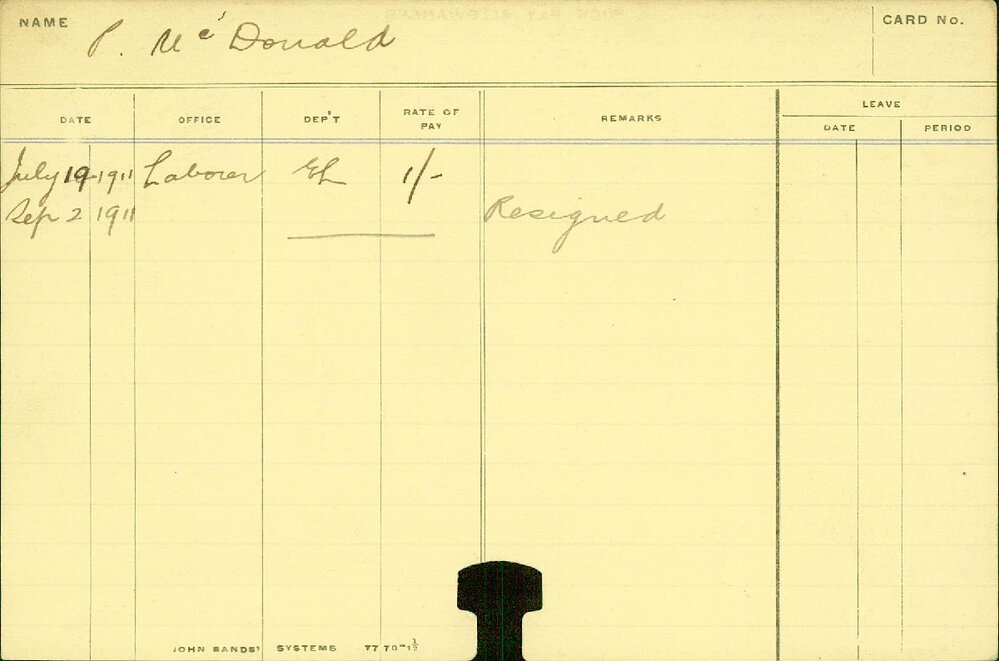 NAME P. McDonald CARD No.
DATE OFFICE DEP'T RATE OF PAY REMARKS LEAVE
DATE PERIOD
July 19 1911 Laborer EL 1/-
Sep 2 1911 Resigned
JOHN SANDS' SYSTEMS